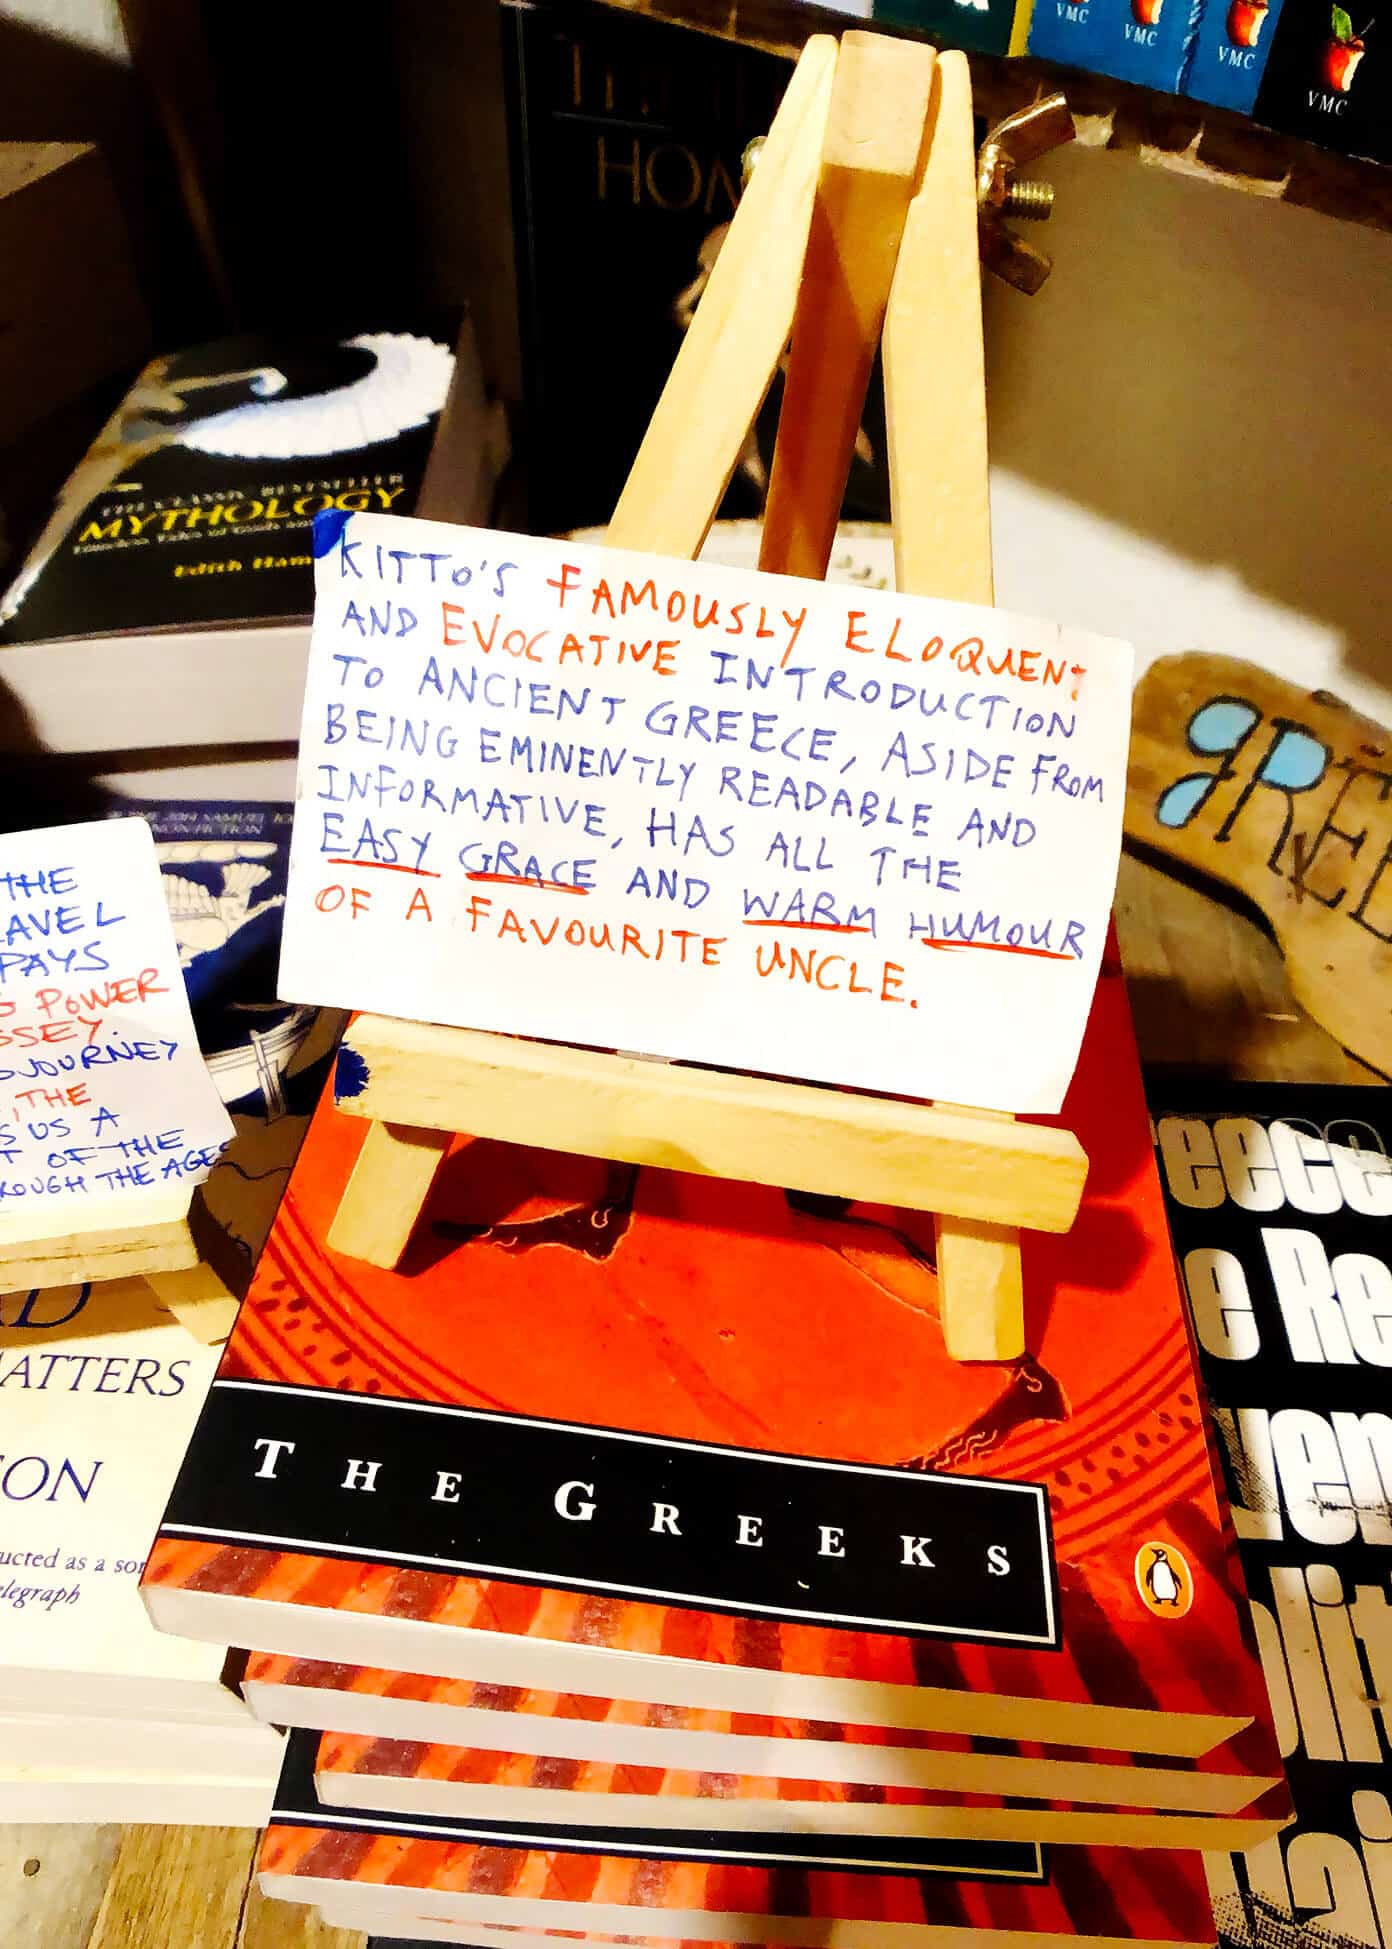 VMC
VMC
VMC
VMC
HOM
THE CLASSIC BESTSELLER
MYTHOLOGY
Timeless Tales of Gods
Edith Ham
KITTO'S FAMOUSLY ELOQUENT
AND EVOCATIVE INTRODUCTION
TO ANCIENT GREECE, ASIDE FROM
BEING EMINENTLY READABLE AND
INFORMATIVE, HAS ALL THE
EASY GRACE AND WARM HUMOUR
OF A FAVOURITE UNCLE.
gREE
THE
AVEL
PAYS
G POWER
SSEY.
JOURNEY
, THE
S US A
T OF THE
ROUGH THE AGES
NON-FICTION
AD
MATTERS
SON
ucted as a son
elegraph
THE GREEKS
eece
e Re
ven
olit